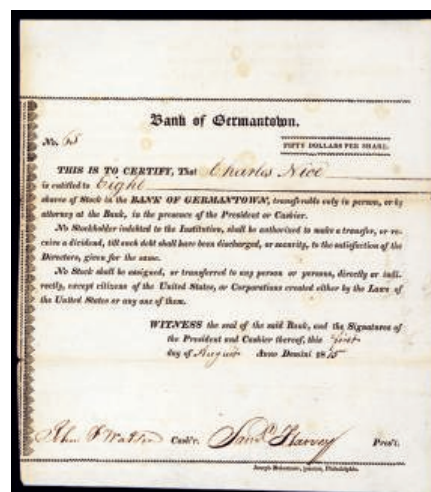 Bank of Germantown.
No. 65
FIFTY DOLLARS PER SHARE.
THIS IS TO CERTIFY, That Charles Nice
is entitled to Eight
shares of Stock in the BANK OF GERMANTOWN, transferable only in person, or by
attorney at the Bank, in the presence of the President or Cashier.
No Stockholder indebted to the Institution, shall be authorized to make a transfer, or re-
ceive a dividend, till such debt shall have been discharged, or security, to the satisfaction of the
Directors, given for the same.
No Stock shall be assigned, or transferred to any person or persons, directly or indi-
rectly, except citizens of the United States, or Corporations created either by the Laws of
the United States or any one of them.
WITNESS the seal of the said Bank, and the Signatures of
the President and Cashier thereof, this first
day of August Anno Domini 1815
John F Watson Cash'r. Saml Harvey Pres't.
Joseph Printer, Philadelphia.